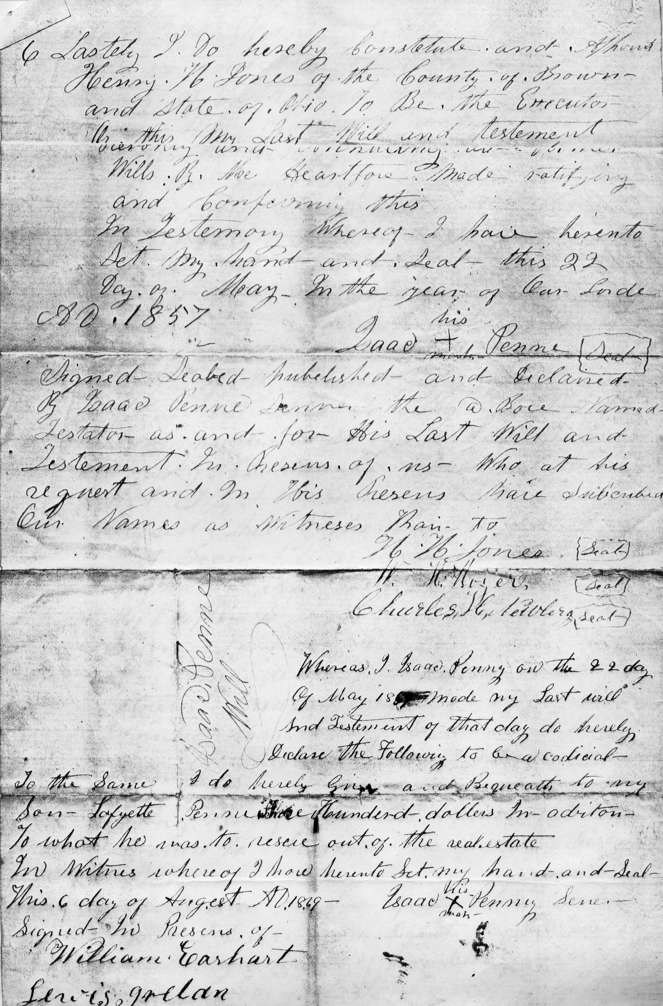 6 Lastely I. Do hereby Constetute. and. Apoint
Henry. H. Jones of. the County. of. Brown-
and State. of. Ohio. To Be. the Executor
Of this My Last Will and testement
and
Wills. By Me Heartfore Made ratifying
and Conferming this
In Testemony Whereof- I have herento
Set. My hand- and. Seal- this 22
Day. of. May- In the year of Our Lorde
AD. 1857
his
Isaac + Penne Seal
mark
Signed- Sealed- pubelished and Declared-
By Isaac Penne Senner the a Bove Named
Testator as. and. for His Last Will and
Testement. In. Presens. of. us- Who at his
request and. In His Presens have Subscribed
Our Names as Witneses Thair- to
H. H. Jones (Seal)
W. (Seal)
Charles. (Seal)
Isaac Penne
Will
Whereas. I. Isaac. Penny on the 22 day
Of May made my Last will
and Testement of that day do hereby
Declare the Following to be a codicial-
To the Same I do hereby Give and Bequeath to my
Son- Lafyette Penne three Hunderd. dollers In- aditon-
To what he was. to. reseve out. of. the real.estate
In Witnes whereof I have herento Set. my hand-and-Seal-
This. 6 day of Augest AD. 1869-
His
Isaac X Penny Sener-
mark-
Signed- In Presens. of-
William. Earhart
Lewis.